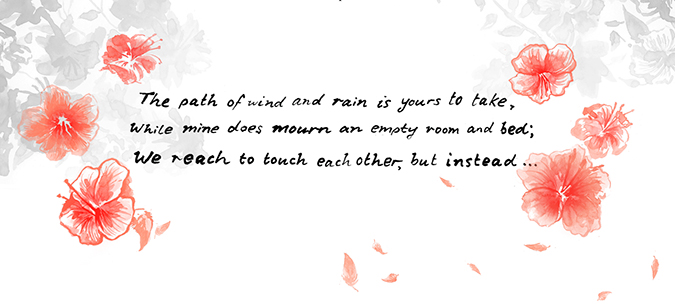 The path of wind and rain is yours to take,
While mine does mourn an empty room and bed;
We reach to touch each other, but instead ...